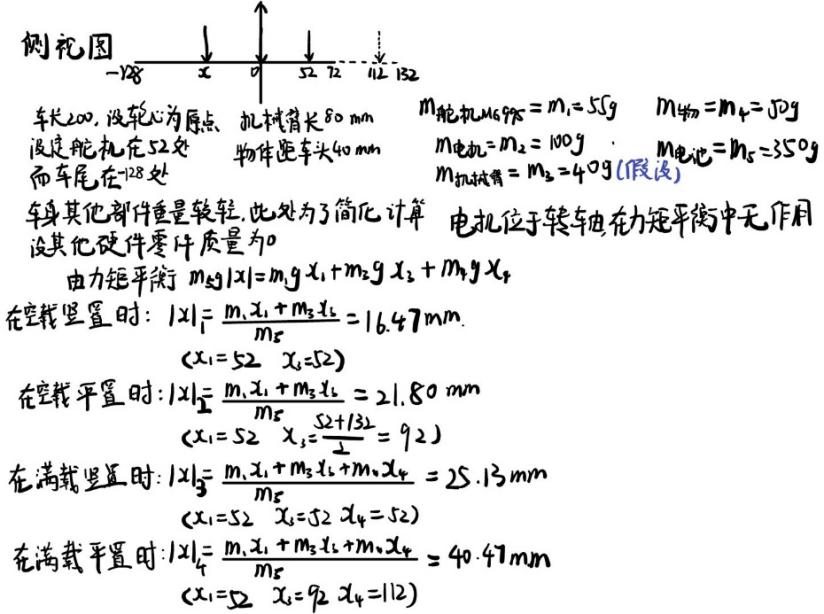 侧视图
-128 x 0 52 72 112 132
车长200,设轮心为原点 机械臂长80mm
设定舵机在52处 物体距车头40mm
而车尾在-128处
m舵机MG995=m₁=55g m物=m₄=50g
m电机=m₂=100g m电池=m₅=350g
m机械臂=m₃=40g(假设)
车身其他部件重量较轻,此处为了简化计算
设其他硬件零件质量为0
电机位于转轴,在力矩平衡中无作用
由力矩平衡 m₅g|x|=m₁gx₁+m₃gx₃+m₄gx₄
在空载竖置时:|x|₁=(m₁x₁+m₃x₃)/m₅=16.47mm.
(x₁=52 x₃=52)
在空载平置时:|x|₂=(m₁x₁+m₃x₃)/m₅=21.80mm
(x₁=52 x₃=(52+132)/2=92)
在满载竖置时:|x|₃=(m₁x₁+m₃x₃+m₄x₄)/m₅=25.13mm
(x₁=52 x₃=52 x₄=52)
在满载平置时:|x|₄=(m₁x₁+m₃x₃+m₄x₄)/m₅=40.47mm
(x₁=52 x₃=92 x₄=112)